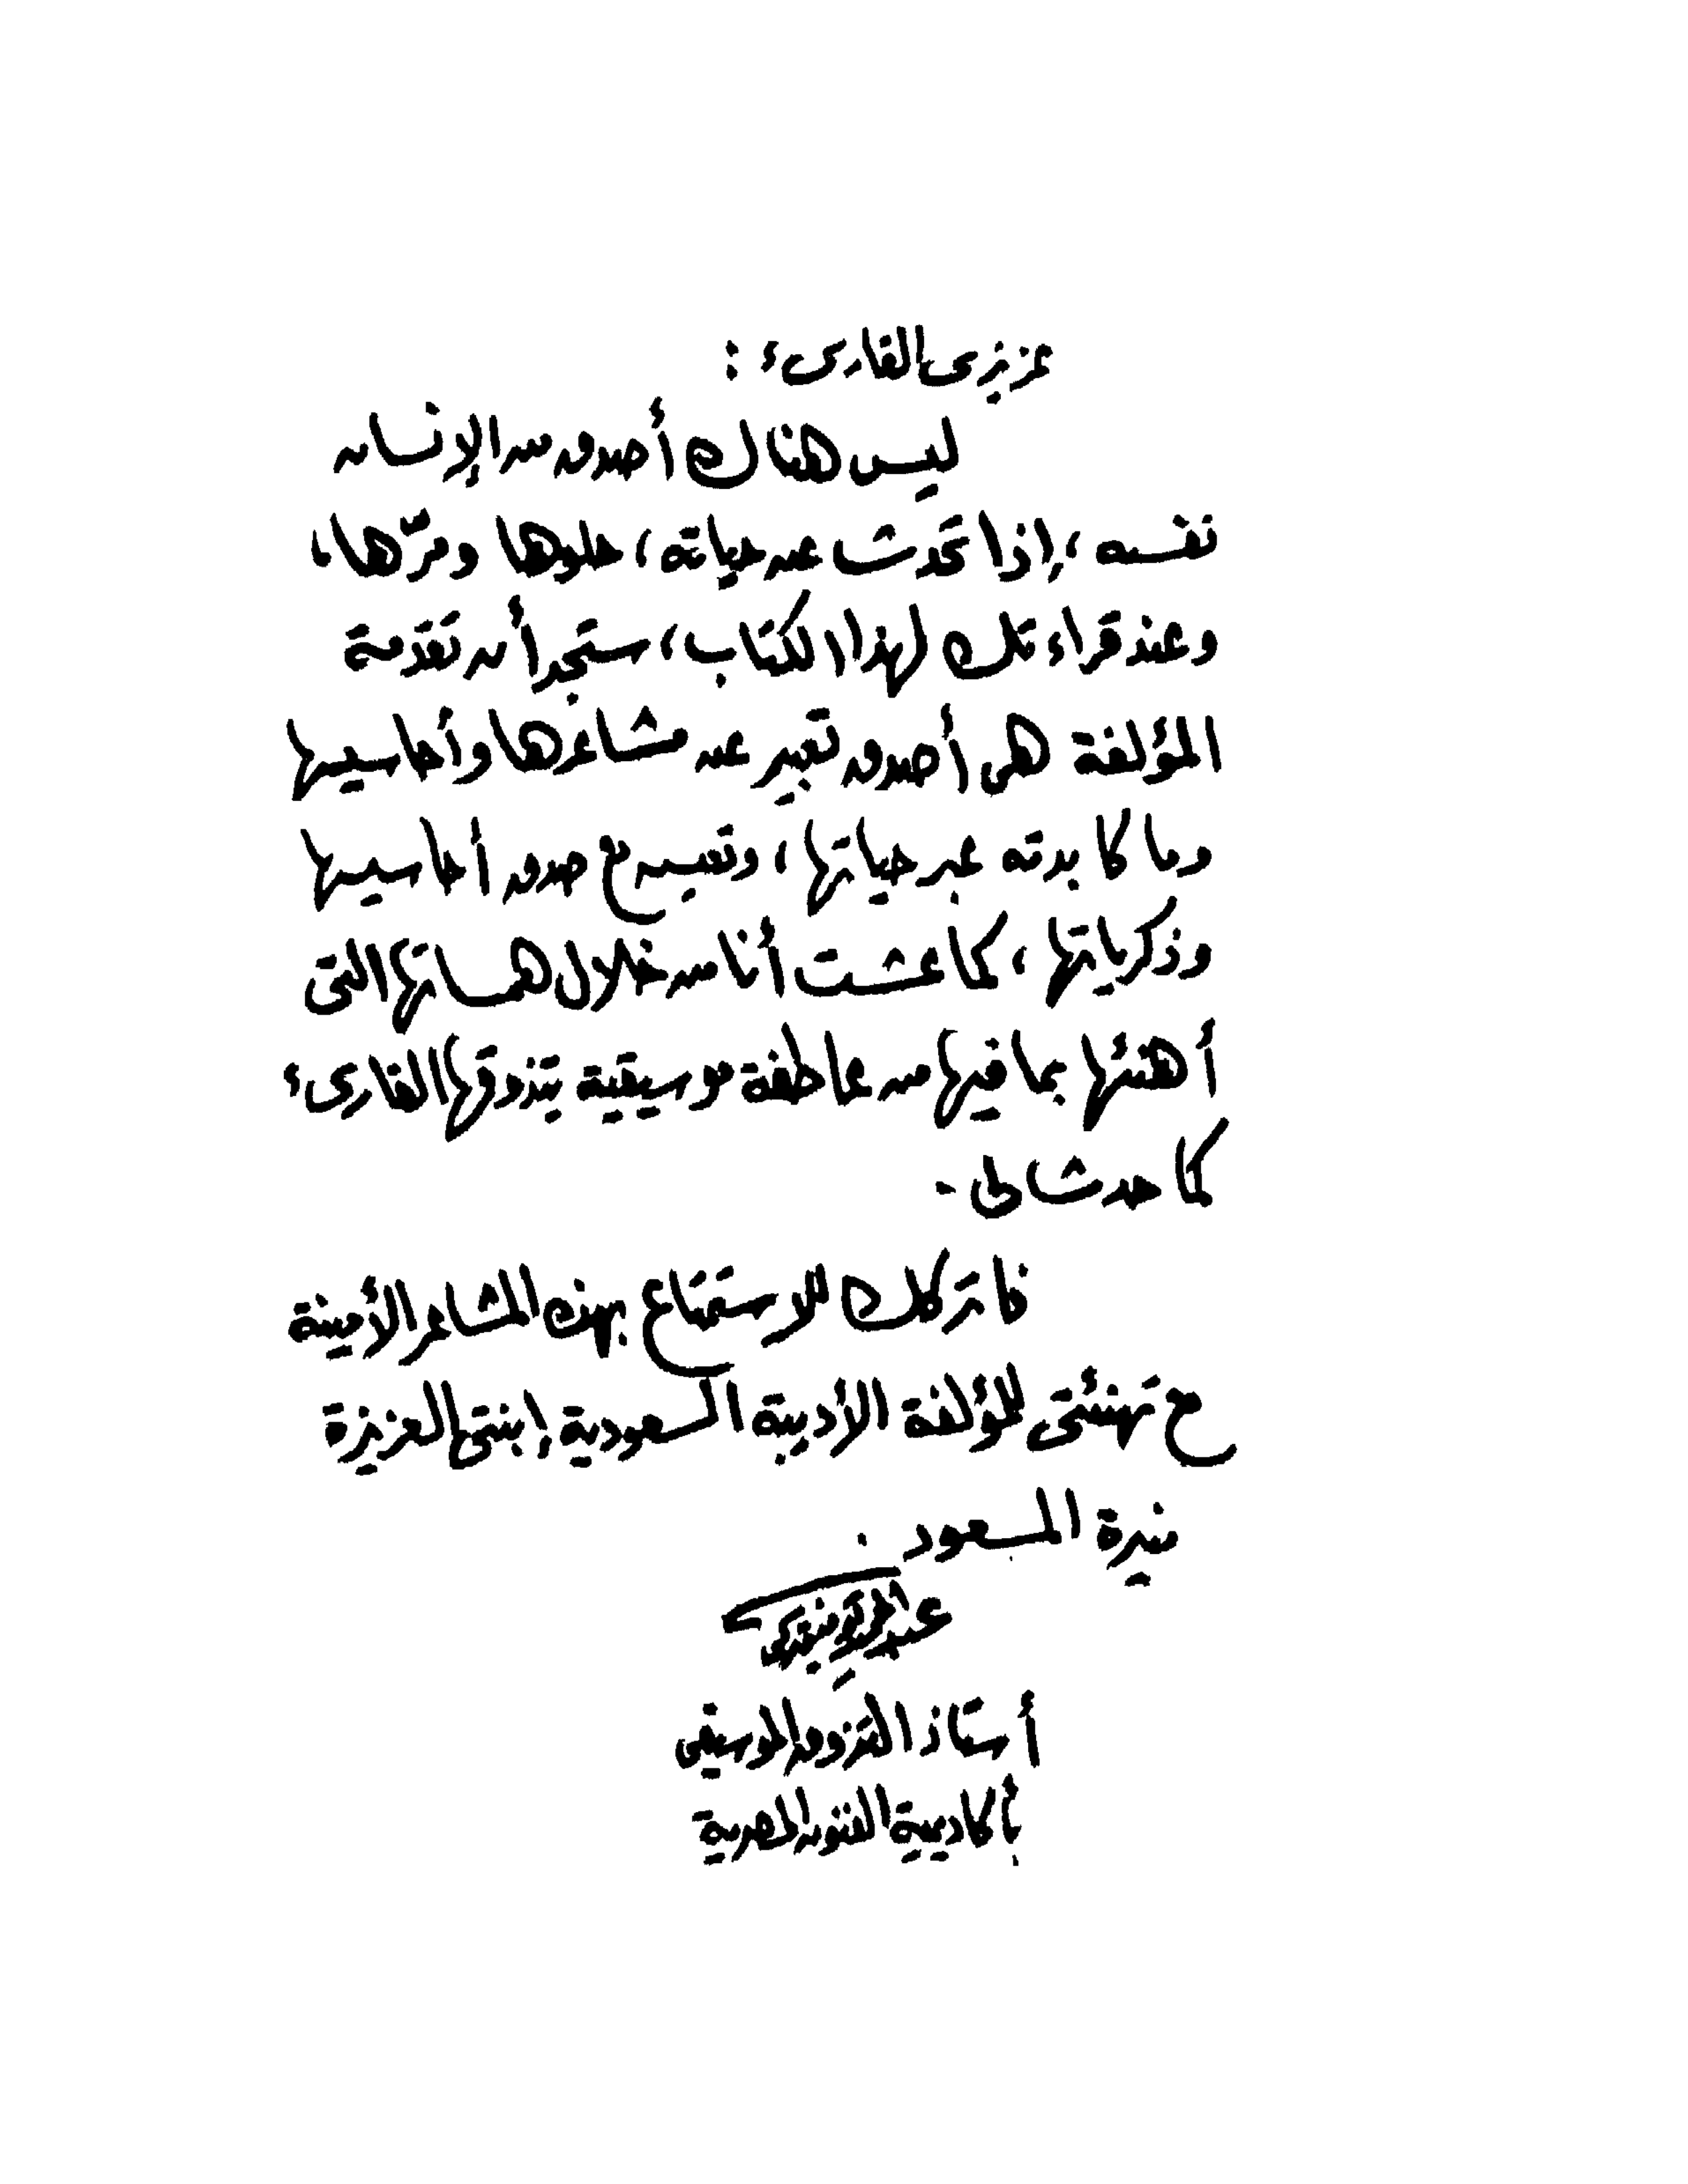 عزيزى القارىء :
ليس هناك أصدق من الإنسان
نفسه ، إذا تحدث عن حياته ، حلوها ومرّها ،
وعند قراءتك لهذا الكتاب ، ستجد أن تقدمة
المؤلفة هى أصدق تعبير عن مشاعرها وأحاسيسها
وما كابدته عبر حياتها ، وتعيش مع صدق أحاسيسها
وذكرياتها ، كما عشت أنا من خلال همساتها التى
أهنئها بما فيها من عاطفة موسيقية يتذوقها القارىء
كما حدث لى .
فأتركك للاستمتاع بهذه المشاعر الأمينة
مع تهنئتى للمؤلفة الأديبة السعودية إبنتى العزيزة
منيرة المسعود .
أستاذ التذوق الموسيقى
بأكاديمية الفنون المصرية